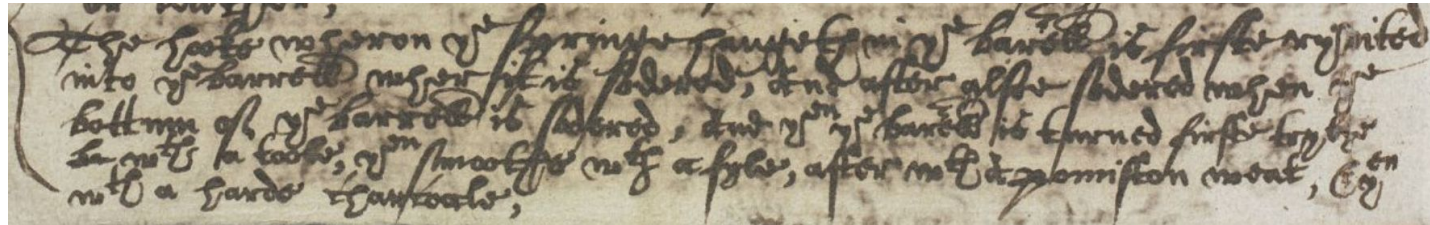 The hooke wheron yͤ springe hangeth in yͤ barrell is firste
into yͤ barrell wher it is sodered, And after alsoe sodered when yͤ
bottum of yͤ barrell is sodered, And yͤⁿ yͤ barrell is turned firste
wᵗʰ a toole, yͤⁿ smoothe wᵗʰ a fyle, after wᵗʰ a pomiston weat, & yͤⁿ
wᵗʰ a harde charcoale,